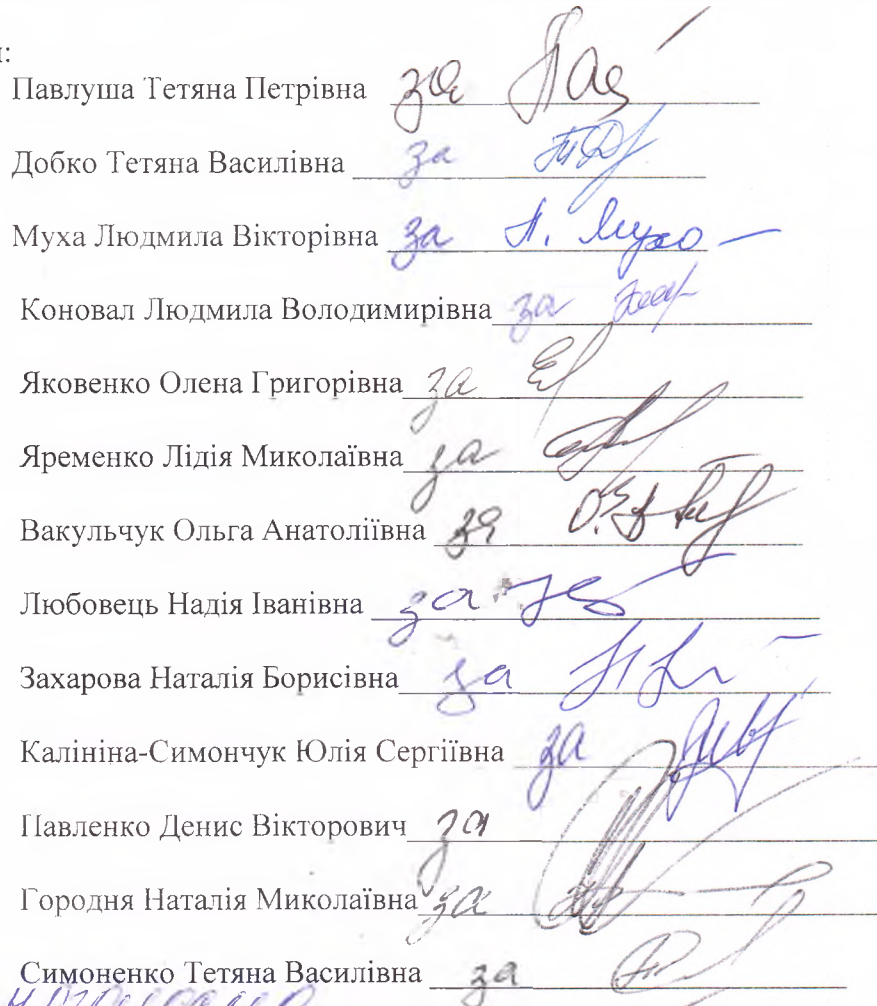 Павлуша Тетяна Петрівна за
Добко Тетяна Василівна за
Муха Людмила Вікторівна за Л. Муха
Коновал Людмила Володимирівна за
Яковенко Олена Григорівна за
Яременко Лідія Миколаївна за
Вакульчук Ольга Анатоліївна за
Любовець Надія Іванівна за
Захарова Наталія Борисівна за
Калініна-Симончук Юлія Сергіївна за
Павленко Денис Вікторович за
Городня Наталія Миколаївна за
Симоненко Тетяна Василівна за